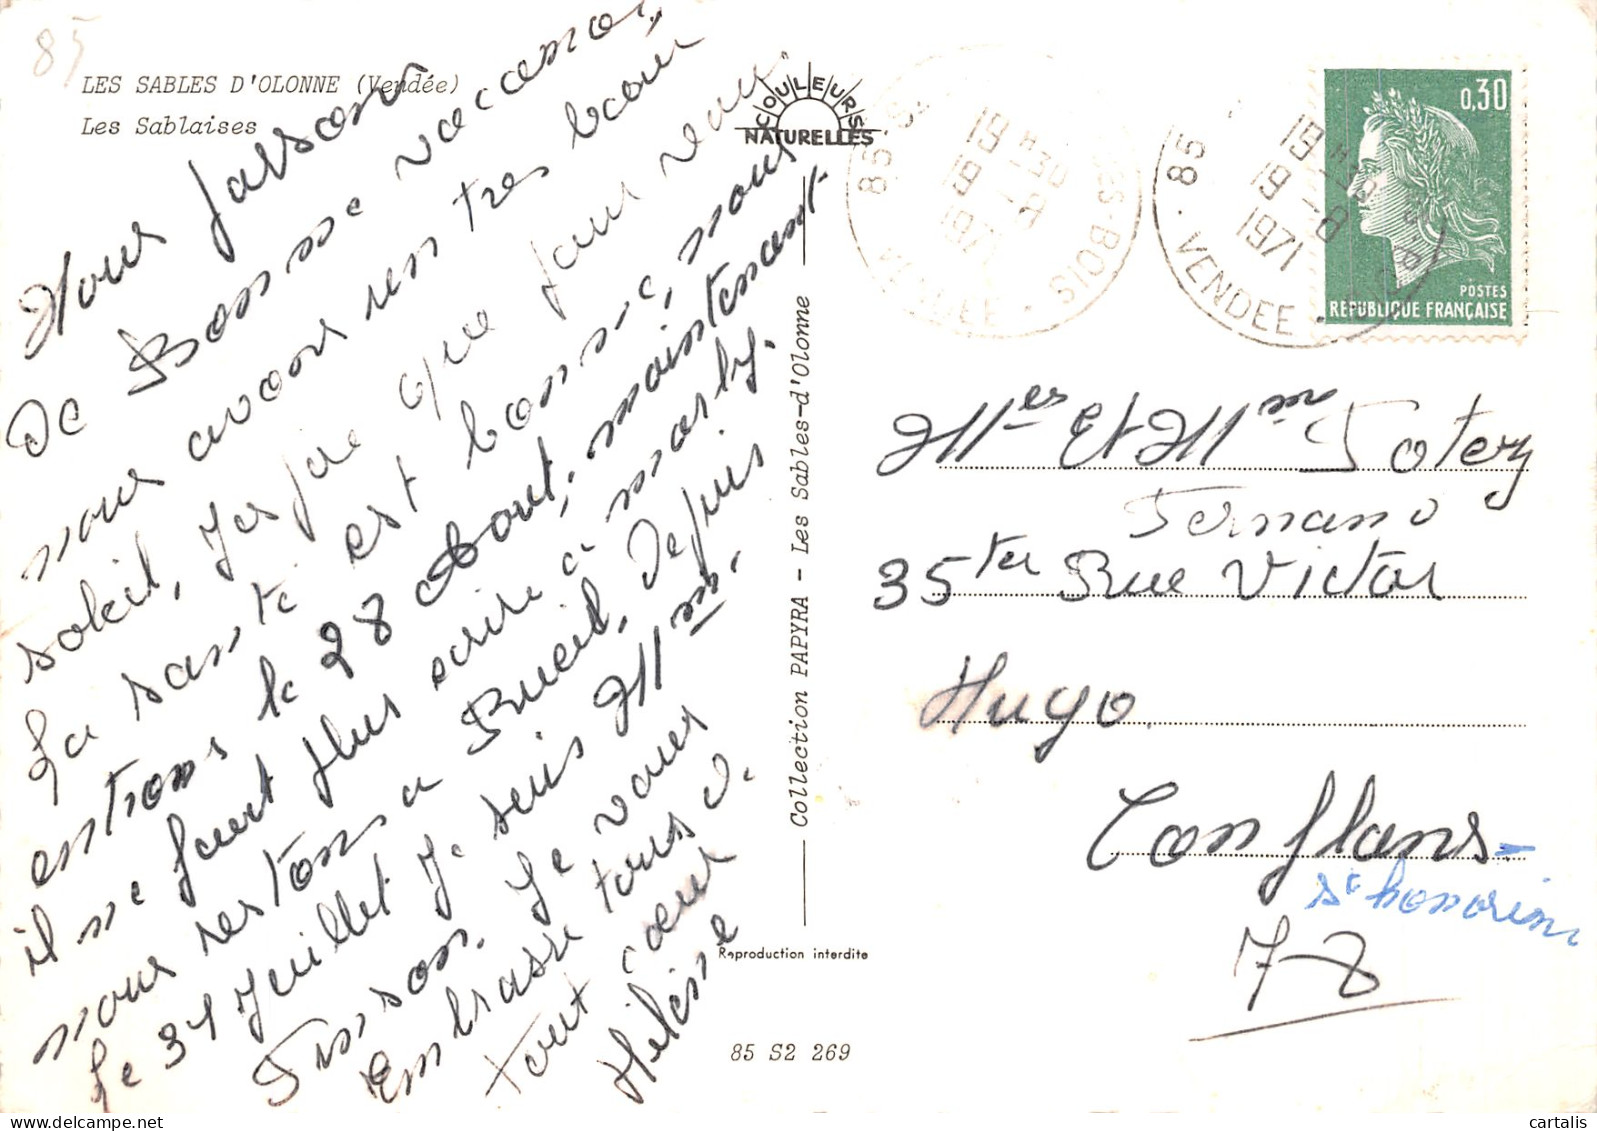 85
LES SABLES D'OLONNE (Vendée)
Les Sablaises
COULEURS
NATURELLES
Nous passons
De Bonne vacances,
nous avons rien tres beau
soleil, J'espere que pour vous.
La santé est bonne, nous
entrons le 28 Aout, maintenant
il ne faut plus ecrire à marly.
nous restons a Rueil, Depuis
le 31 Juillet Je suis Mme
Pinson. Je vous
Embrasse tous d.
tout cœur
Hélène
Collection PAPYRA - Les Sables-d'Olonne
Reproduction interdite
85 S2 269
85
19 H 30
19 - 8
1971
VENDEE
ES-BOIS
85
19 H 30
19 - 8
1971
VENDEE
0,30
POSTES
REPUBLIQUE FRANÇAISE
Mes Et Mme Potery
Fernand
35 ter Rue Victor
Hugo
Conflans-
St honorine
78
cartalis